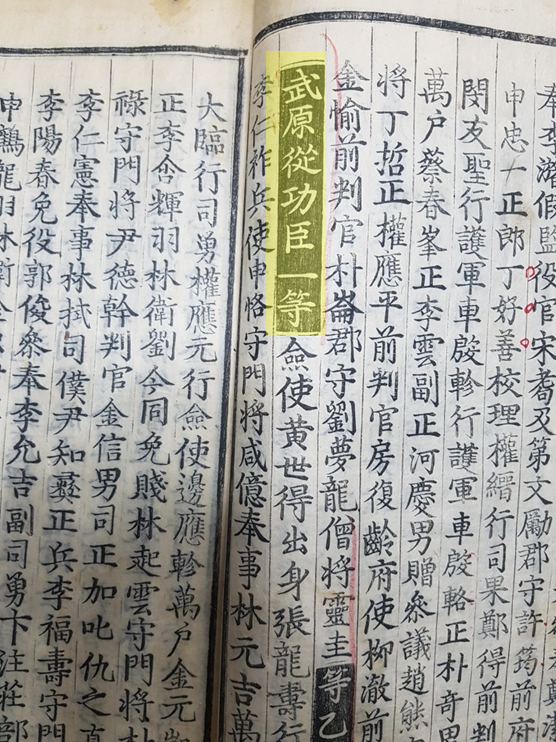 李濬假監役官宋耈及第文勵郡守許筠前府
申忠一正郎丁好善校理權縉行司果鄭得前判
閔友聖行護軍車殷軫行護軍車殷輅正朴奇男
萬户蔡春峯正李雲副正河慶男贈叅議趙熊
將丁哲正權應平前判官房復齡府使柳澈前
金愉前判官朴崙郡守劉夢龍僧將靈圭等乙
武原從功臣一等僉使黃世得出身張龍壽行
李仁祚兵使申恪守門將咸億奉事林元吉萬
大臨行司勇權應元行僉使邊應軫萬户金元
正李含輝羽林衛劉今同免賤林起雲守門將朴
祿守門將尹德幹判官金信男司正加叱仇之直
李仁憲奉事林栻司僕尹知彝正兵李福壽守門
李陽春免役郭俊叅奉李允吉副司勇卞汪